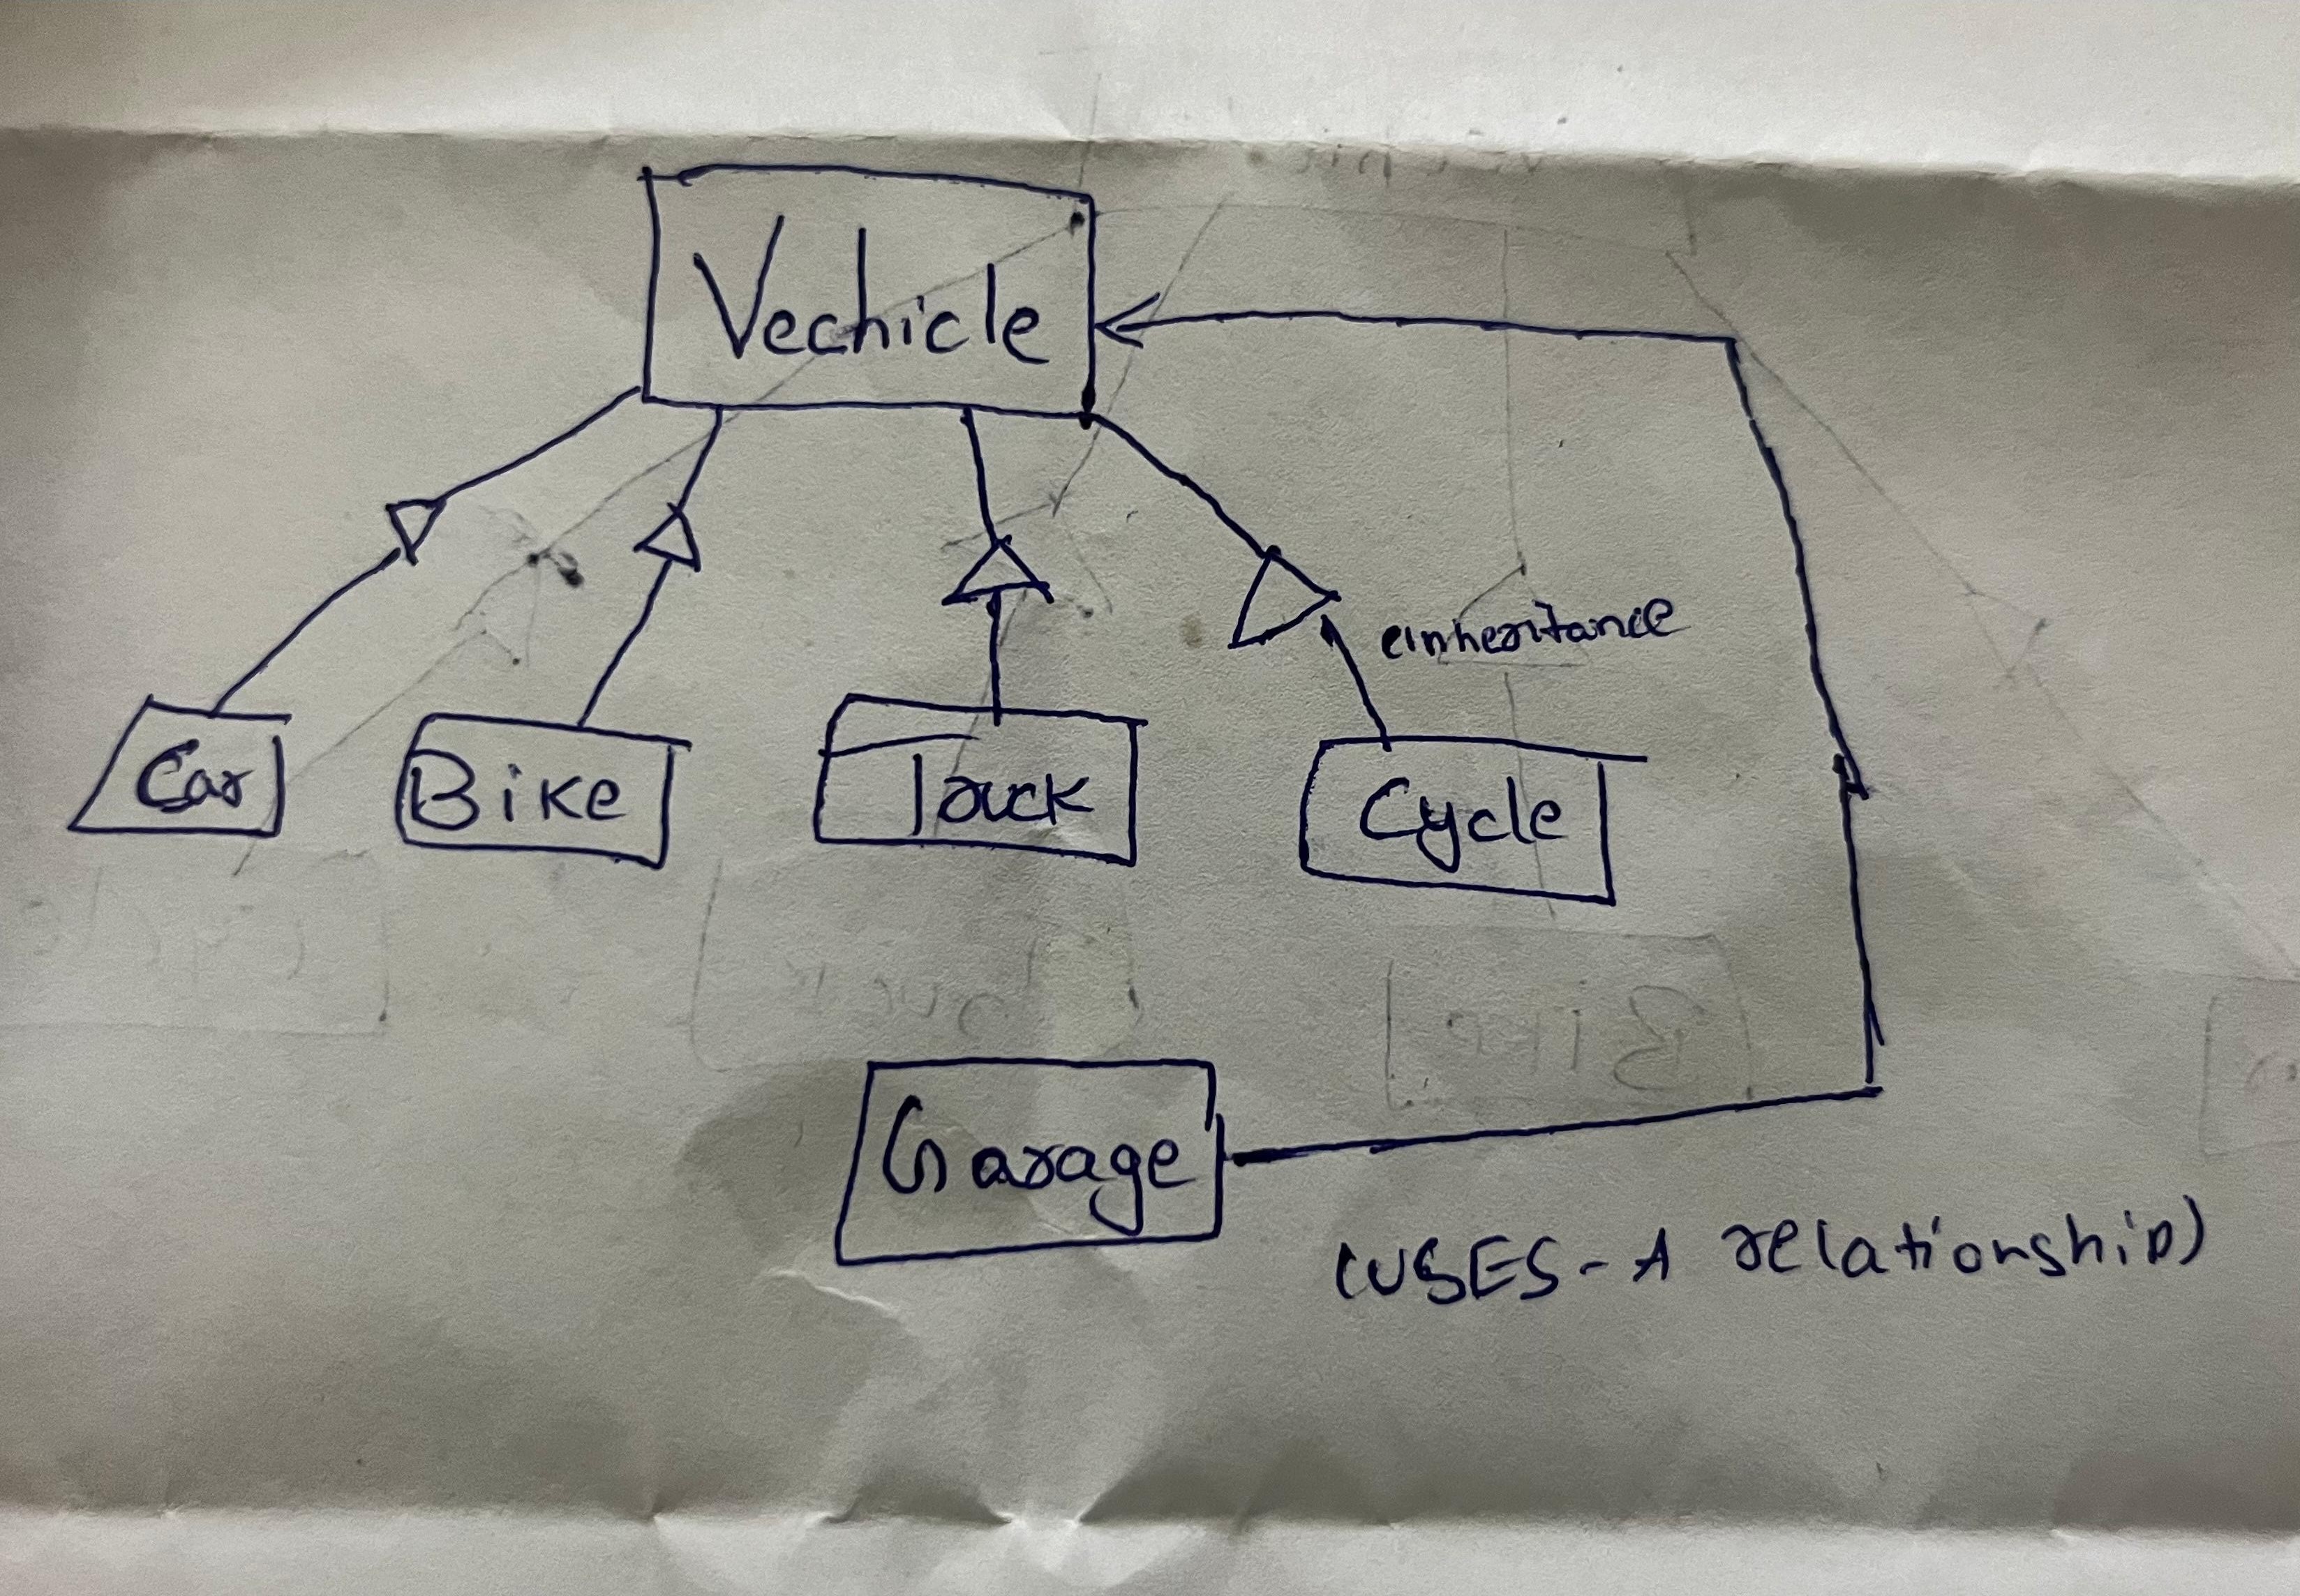 Vechicle
einheritance
Car
Bike
Truck
Cycle
Garage
(USES-A relationship)